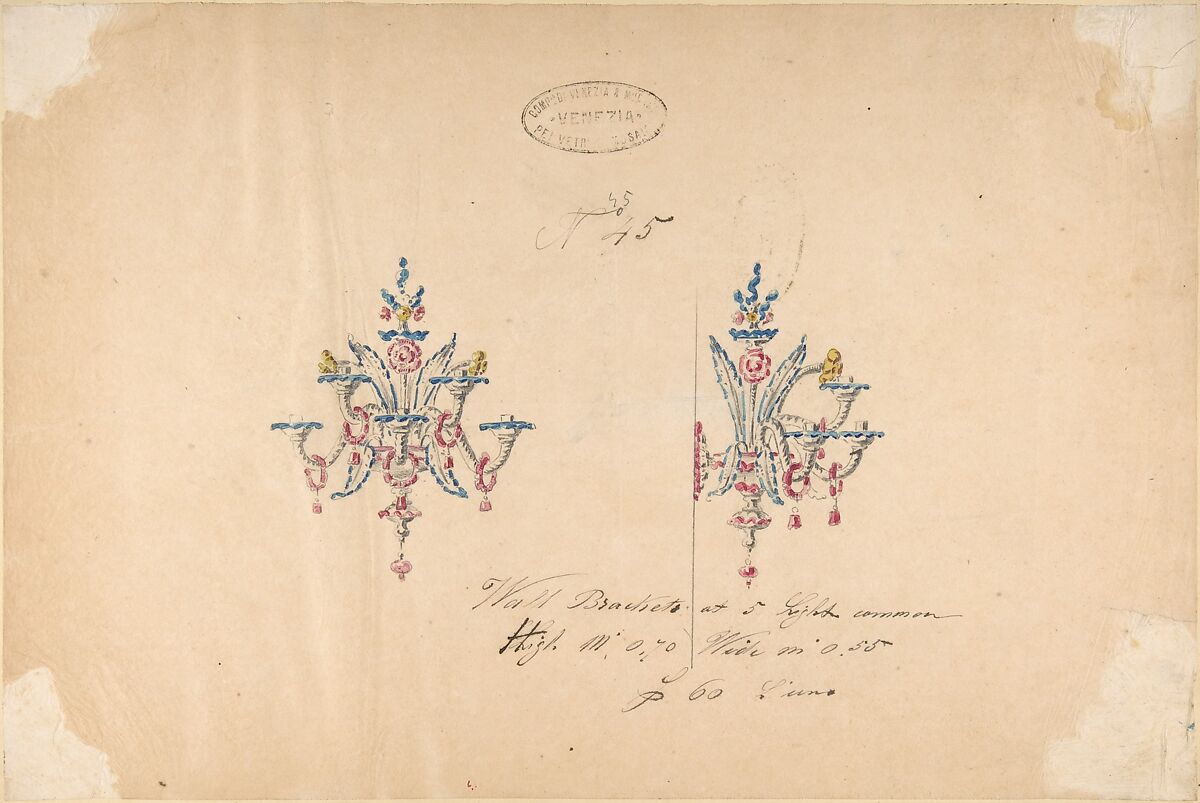 COMP. DI VENEZIA & MU
VENEZIA
PEI VETR
45
No 45
Wall Brackets at 5 Light common
High m 0.70 Wide m 0.55
60 L'uno